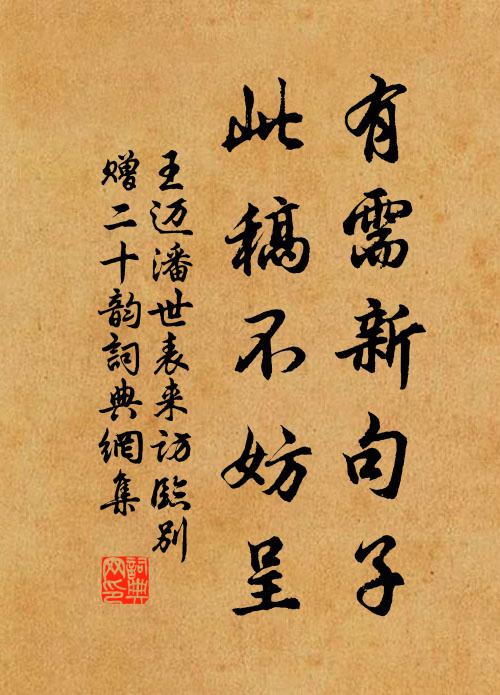 有需新句子
此稿不妨呈
王迈潘世表来访臨别
赠二十韵詞典網集
詞典网印